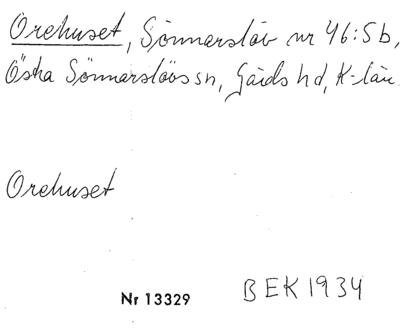 Orehuset, Sönnarslöv nr 46:5b,
Östra Sönnarslövs sn, Gärds hd, K-län.
Orehuset
Nr 13329
BEK 1934